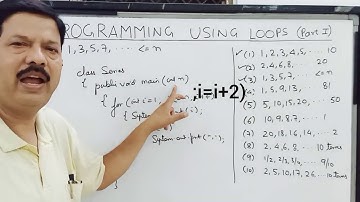 PROGRAMMING USING LOOPS (Part I)
1, 3, 5, 7, ... <= n
class Series
{ public void main (int n)
{ for (int i=1,
;i=i+2)
{ System
System.out.print (",");
}
(1) 1, 2, 3, 4, 5, ... 10
(2) 2, 4, 6, 8, ... 20
(3) 1, 3, 5, 7, ... <= n
(4) 1, 5, 9, 13, ... 81
(5) 5, 10, 15, 20, ... 50
(6) 10, 9, 8, 7, ... 1
(7) 20, 18, 16, 14, ... 2
(8) 2, 4, 6, 8, ... 10 terms
(9) 1/2, 2/3, 3/4, ... 9/10
(10) 2, 5, 10, 17, 26 ... 10 terms